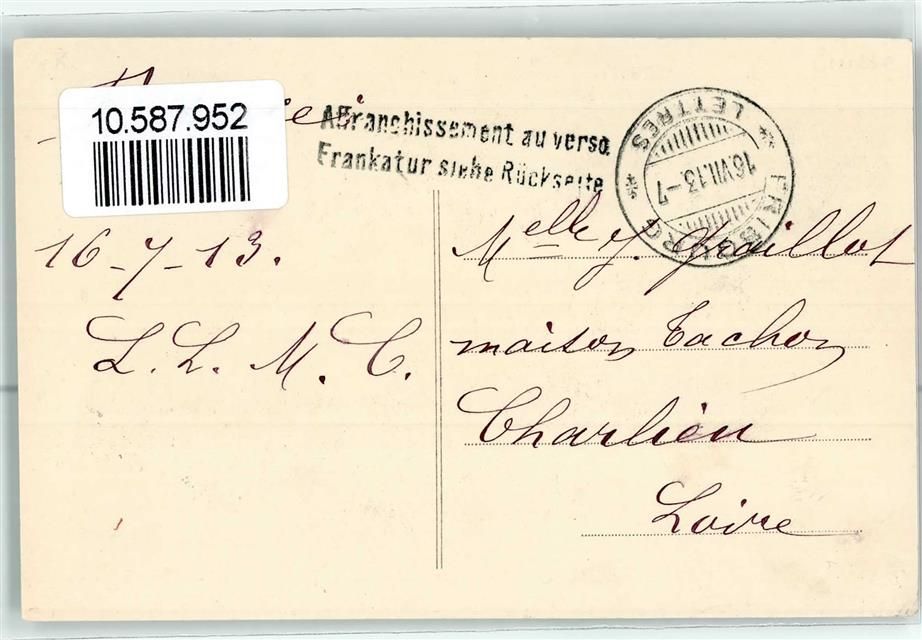 10.587.952
Affranchissement au verso.
Frankatur siehe Rückseite
FRIBOURG
LETTRES
16.VII.13.-7
16-7-13.
L. L. M. C.
Melle J. Graillot
maison Tachon
Charlieu
Loire